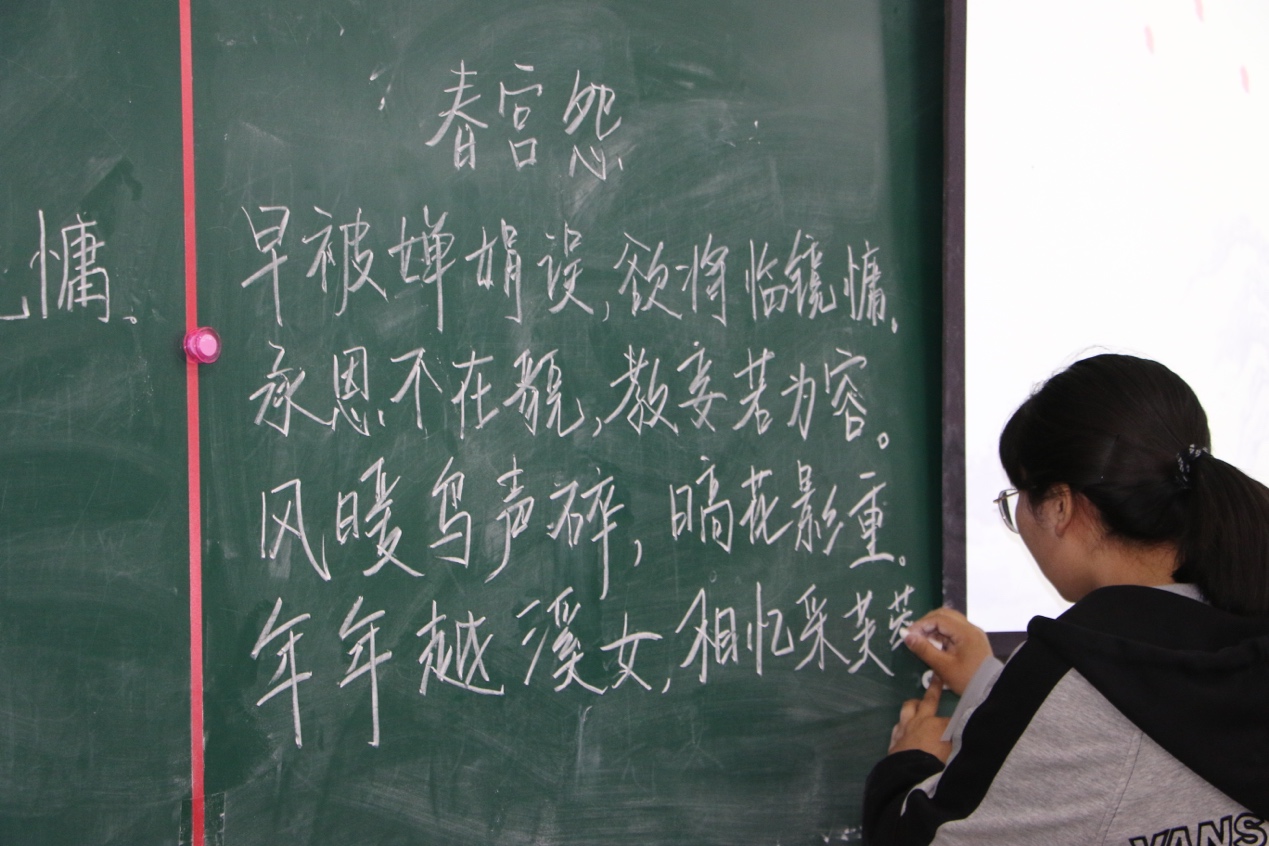 慵。
春宫怨
早被婵娟误,欲将临镜慵.
承恩不在貌,教妾若为容。
风暖鸟声碎,日高花影重。
年年越溪女,相忆采芙蓉
VANS